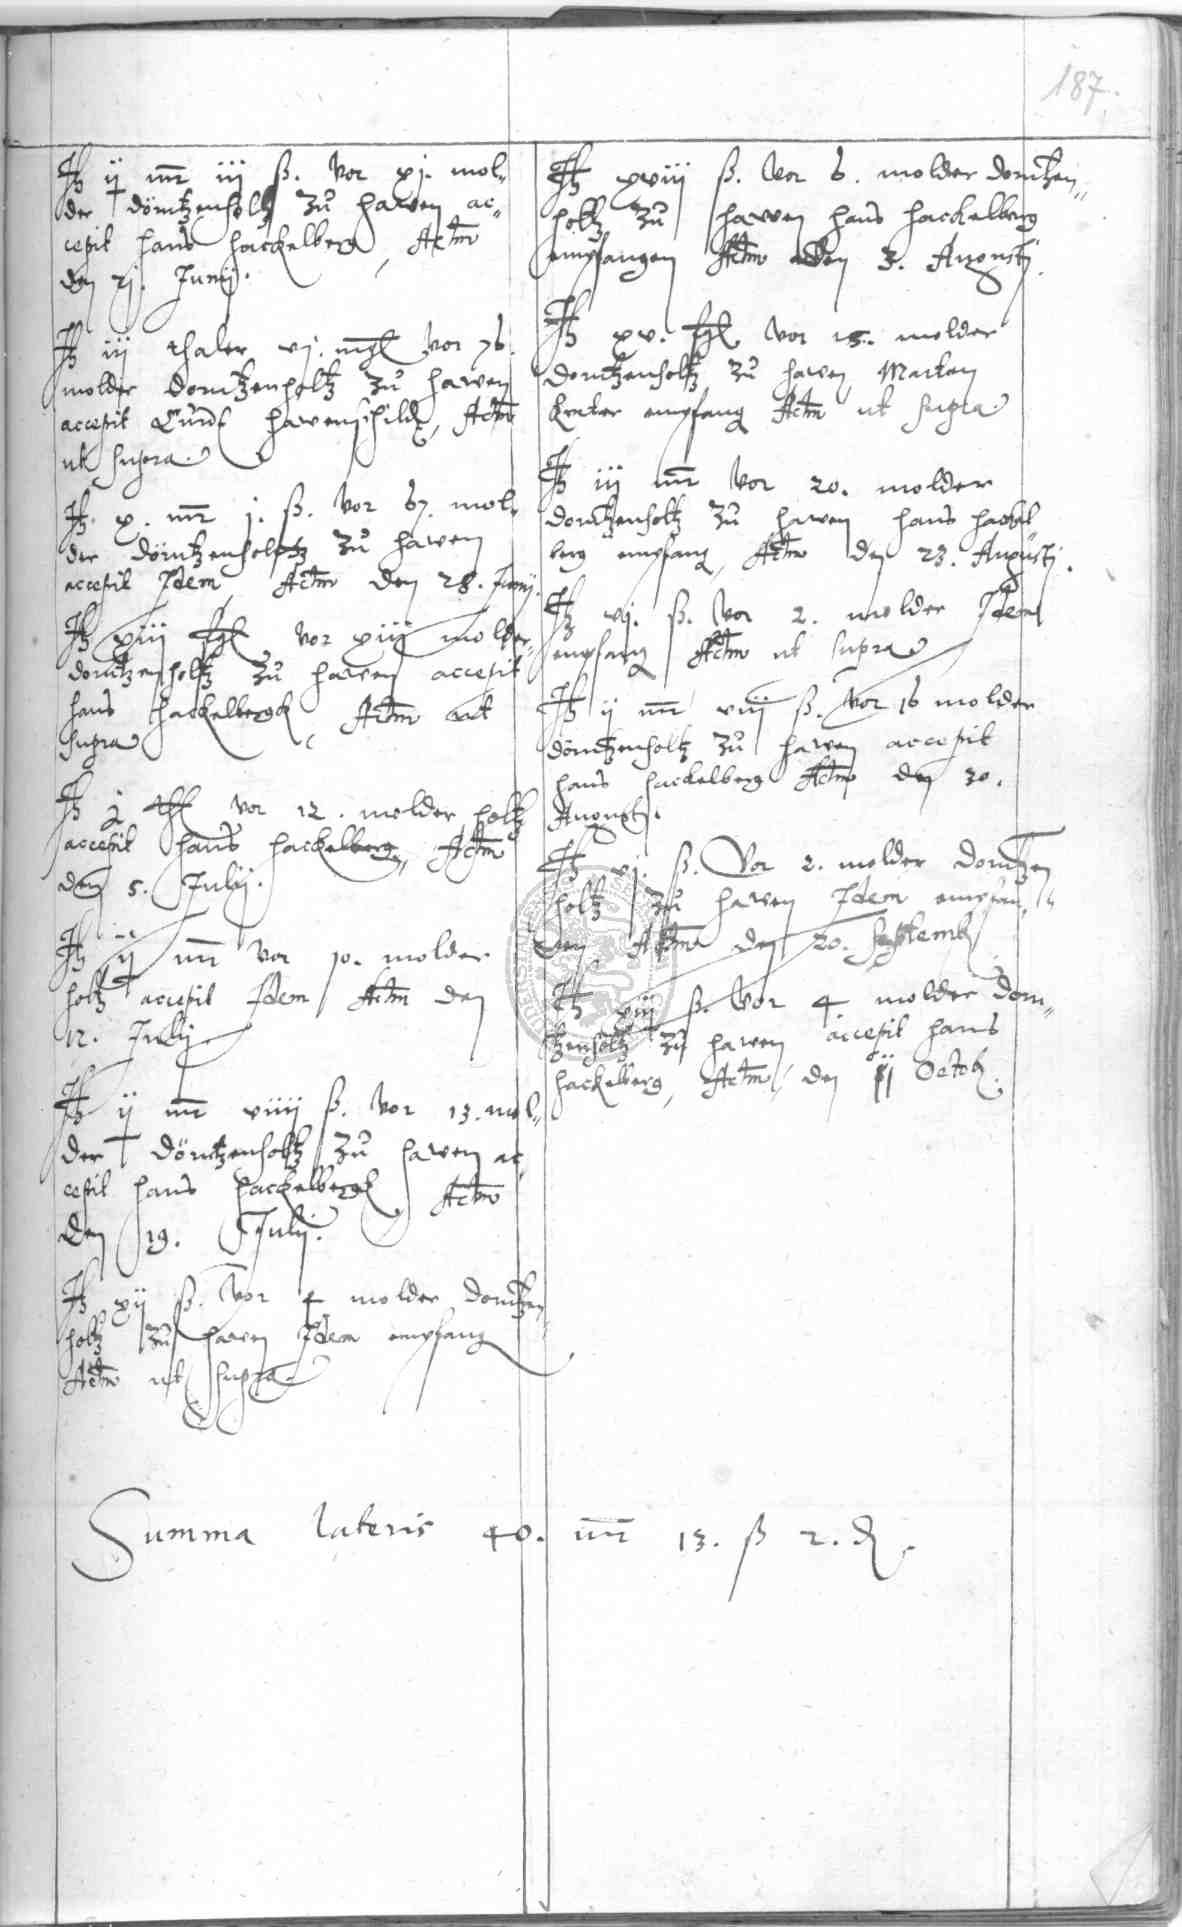 187.
Itz ij mr iij ß. vor xj. mol„
der dörntzenholtz zu hawen ac„
cepit hans hackelberg, Actm
den 21. Junij.
Itz iij thaler vj. mgl vor 76.
molder dorntzenholtz zu hawen
accepit Curdt havenschildt, Actm
ut supra.
Itz x. mr j. ß. vor 67. mol„
der dörntzenholtz zu hawen
accepit Idem, Actm den 28. Junij.
Itz xiij fgl vor xiij molder
dorntzenholtz zu hawen accepit
hans hackelbergk, Actm ut
supra
Itz j vor 12. molder holtz
accepit hans hackelberg, Actm
den 5. Julij.
Itz ij mr vor 10. molder
holtz accepit Idem Actm den
12. Julij
Itz ij mr viiij ß. vor 13. mol„
der dörntzenholtz zu hawen ac
cepit hans hackelbergk Actm
den 19. Julij.
Itz xij ß. vor 4 molder dorntzen„
holtz zu hawen Idem empfang
Actm ut supra.
Itz xviij ß. vor 6. molder dorntzen„
holtz zu hawen hans hackelberg
empfangen Actm den 3. Augusti.
Itz xv. fgl vor 15. molder
dorntzenholtz zu hawen Marten
empfang Actm ut supra
Itz iij mr vor 20. molder
dorntzenholtz zu hawen hans hackel
berg empfang, Actm den 23. Augusti.
Itz vj. ß. vor 2. molder Idem
empfang Actm ut supra
Itz ij mr viij ß. vor 16 molder
dörntzenholtz zu hawen accepit
hans hackelberg Actm den 30.
Augusti.
Itz vj. ß. vor 2. molder dorntzen
holtz zu hawen Idem empfan„
gen Actm den 20. Septemb
Itz xiij ß. vor 4 molder dorn„
tzenholtz zu hawen accepit hans
hackelberg, Actm den 11 Octob.
Summa lateris 40. mr 13. ß 2. d.